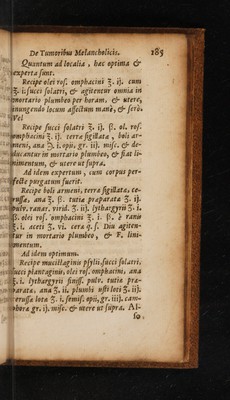 De Tumoribus Melancholicis. 185
Quantum ad localia, hæc optima &
experta sunt.
Recipe olei ros. omphacini ʒ. ij. cum
ʒ. i. succi solatri, & agitentur omnia in
mortario plumbeo per horam. & utere,
inungendo locum affectum manè, & serò.
Vel
Recipe succi solatri ʒ. ß. ol. ros.
omphacini ʒ. ij. terræ sigillata, boli ar-
meni, ana Ͽ. i. opii, gr. iij. misc. & de-
ducantur in mortario plumbeo, & fiat li-
nimentum, & utere ut supra.
Ad idem expertum, cum corpus per-
fectè purgatum fuerit.
Recipe boli armeni, terræ sigillata, ce-
russæ, ana ʒ. ß. tutiæ præparata ʒ. ij.
pulv. ranar. virid. ʒ. ij. lythargyrii ʒ. i.
ß. olei ros. omphacini ʒ. i. ß. è ranis
ʒ. i. aceti ʒ. vi. cera q. s. Diu agiten-
tur in mortario plumbeo, & F. lini-
mentum.
Ad idem optimum.
Recipe mucillaginis psylii, succi solatri,
succi plantaginis, olei ros. omphacini, ana
ʒ. i. lythargyrii finiss. pulv. tutiæ præ-
parata, ana ʒ. ii. plumbi usti loti ʒ. ij).
cerussæ lota ʒ. i. semiss. opii, gr. iij. cam-
phora gr. i). misc. & utere ut supra. Al-
so